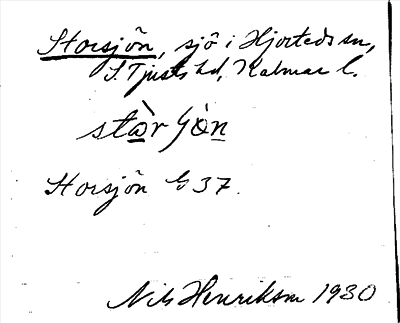 Storsjön, sjö i Hjorteds sn,
S. Tjusts hd, Kalmar l.
stòr ʃön
Storsjön G 37.
Nils Henrikson 1930